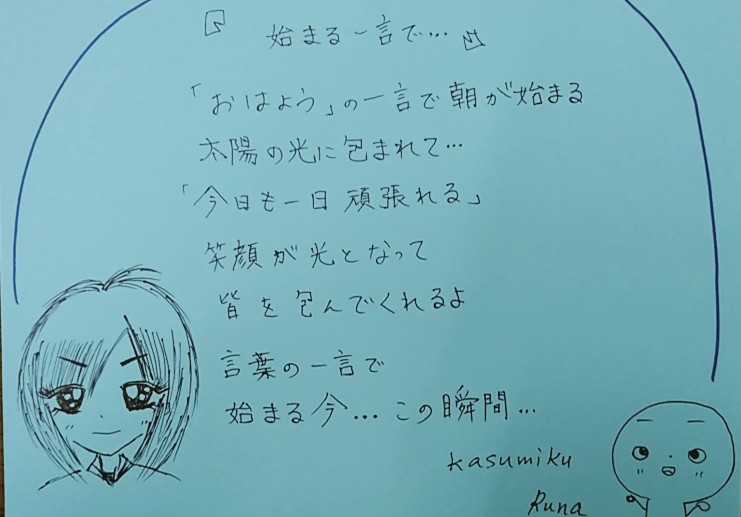 『始まる一言で…』
「おはよう」の一言で朝が始まる
太陽の光に包まれて…
「今日も一日頑張れる」
笑顔が光となって
皆を包んでくれるよ
言葉の一言で
始まる今…この瞬間…
kasumiku
Runa